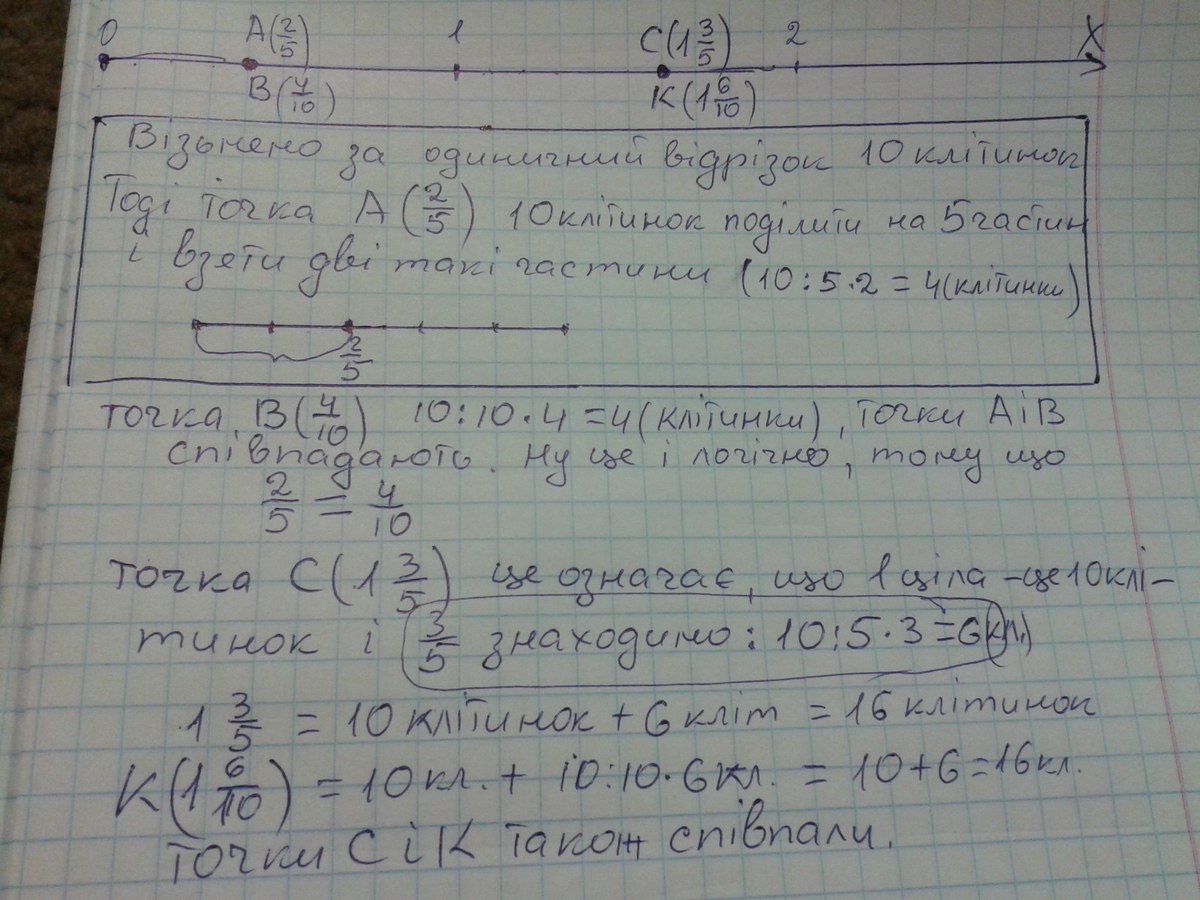 0 A(2/5) 1 C(1 3/5) 2 X
B(4/10) K(1 6/10)
Візьмемо за одиничний відрізок 10 клітинок
Тоді точка A(2/5) 10 клітинок поділити на 5 частин
і взяти дві такі частини (10:5·2=4(клітинки)
2/5
точка B(4/10) 10:10·4=4(клітинки), точки A і B
співпадають. Ну це і логічно, тому що
2/5 = 4/10
точка C(1 3/5) це означає, що 1 ціла - це 10 клі-
тинок і 3/5 знаходимо: 10:5·3=6(кл.)
1 3/5 = 10 клітинок + 6 кліт = 16 клітинок
K(1 6/10) = 10 кл. + 10:10·6 кл. = 10+6=16 кл.
точки C і K також співпали.